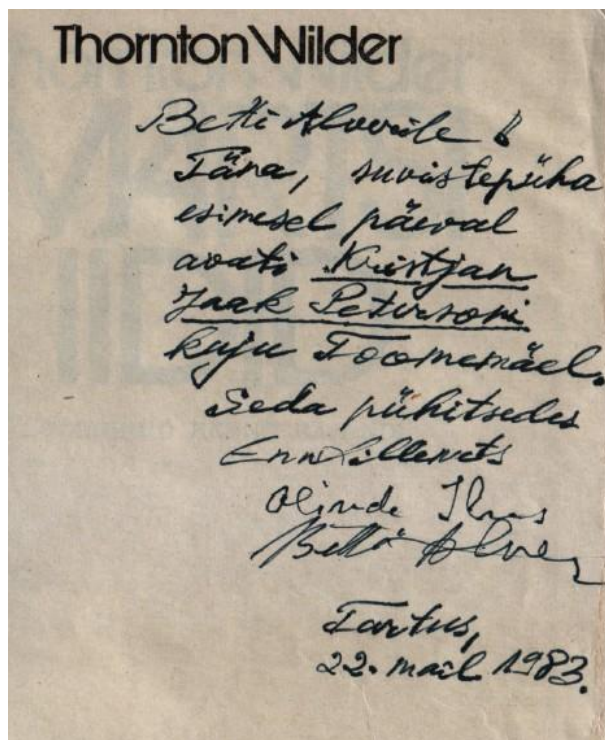 Thornton Wilder
Betti Alverile!
Täna, suvistepüha
esimesel päeval
avati Kristjan
Jaak Petersoni
kuju Toomemäel.
Seda pühitsedes
Enn Lillemets
Olinde Ilus
Betti Alver
Tartus,
22. mail 1983.